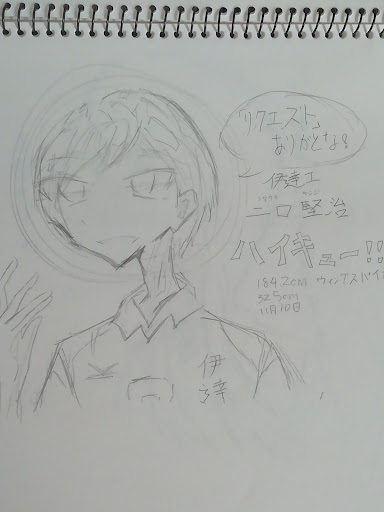 「リクエスト」
ありがとな!
伊達工
二口 堅治
ハイキュー!!
184.2cm ウィングスパイ
325cm
11月10日
伊
達